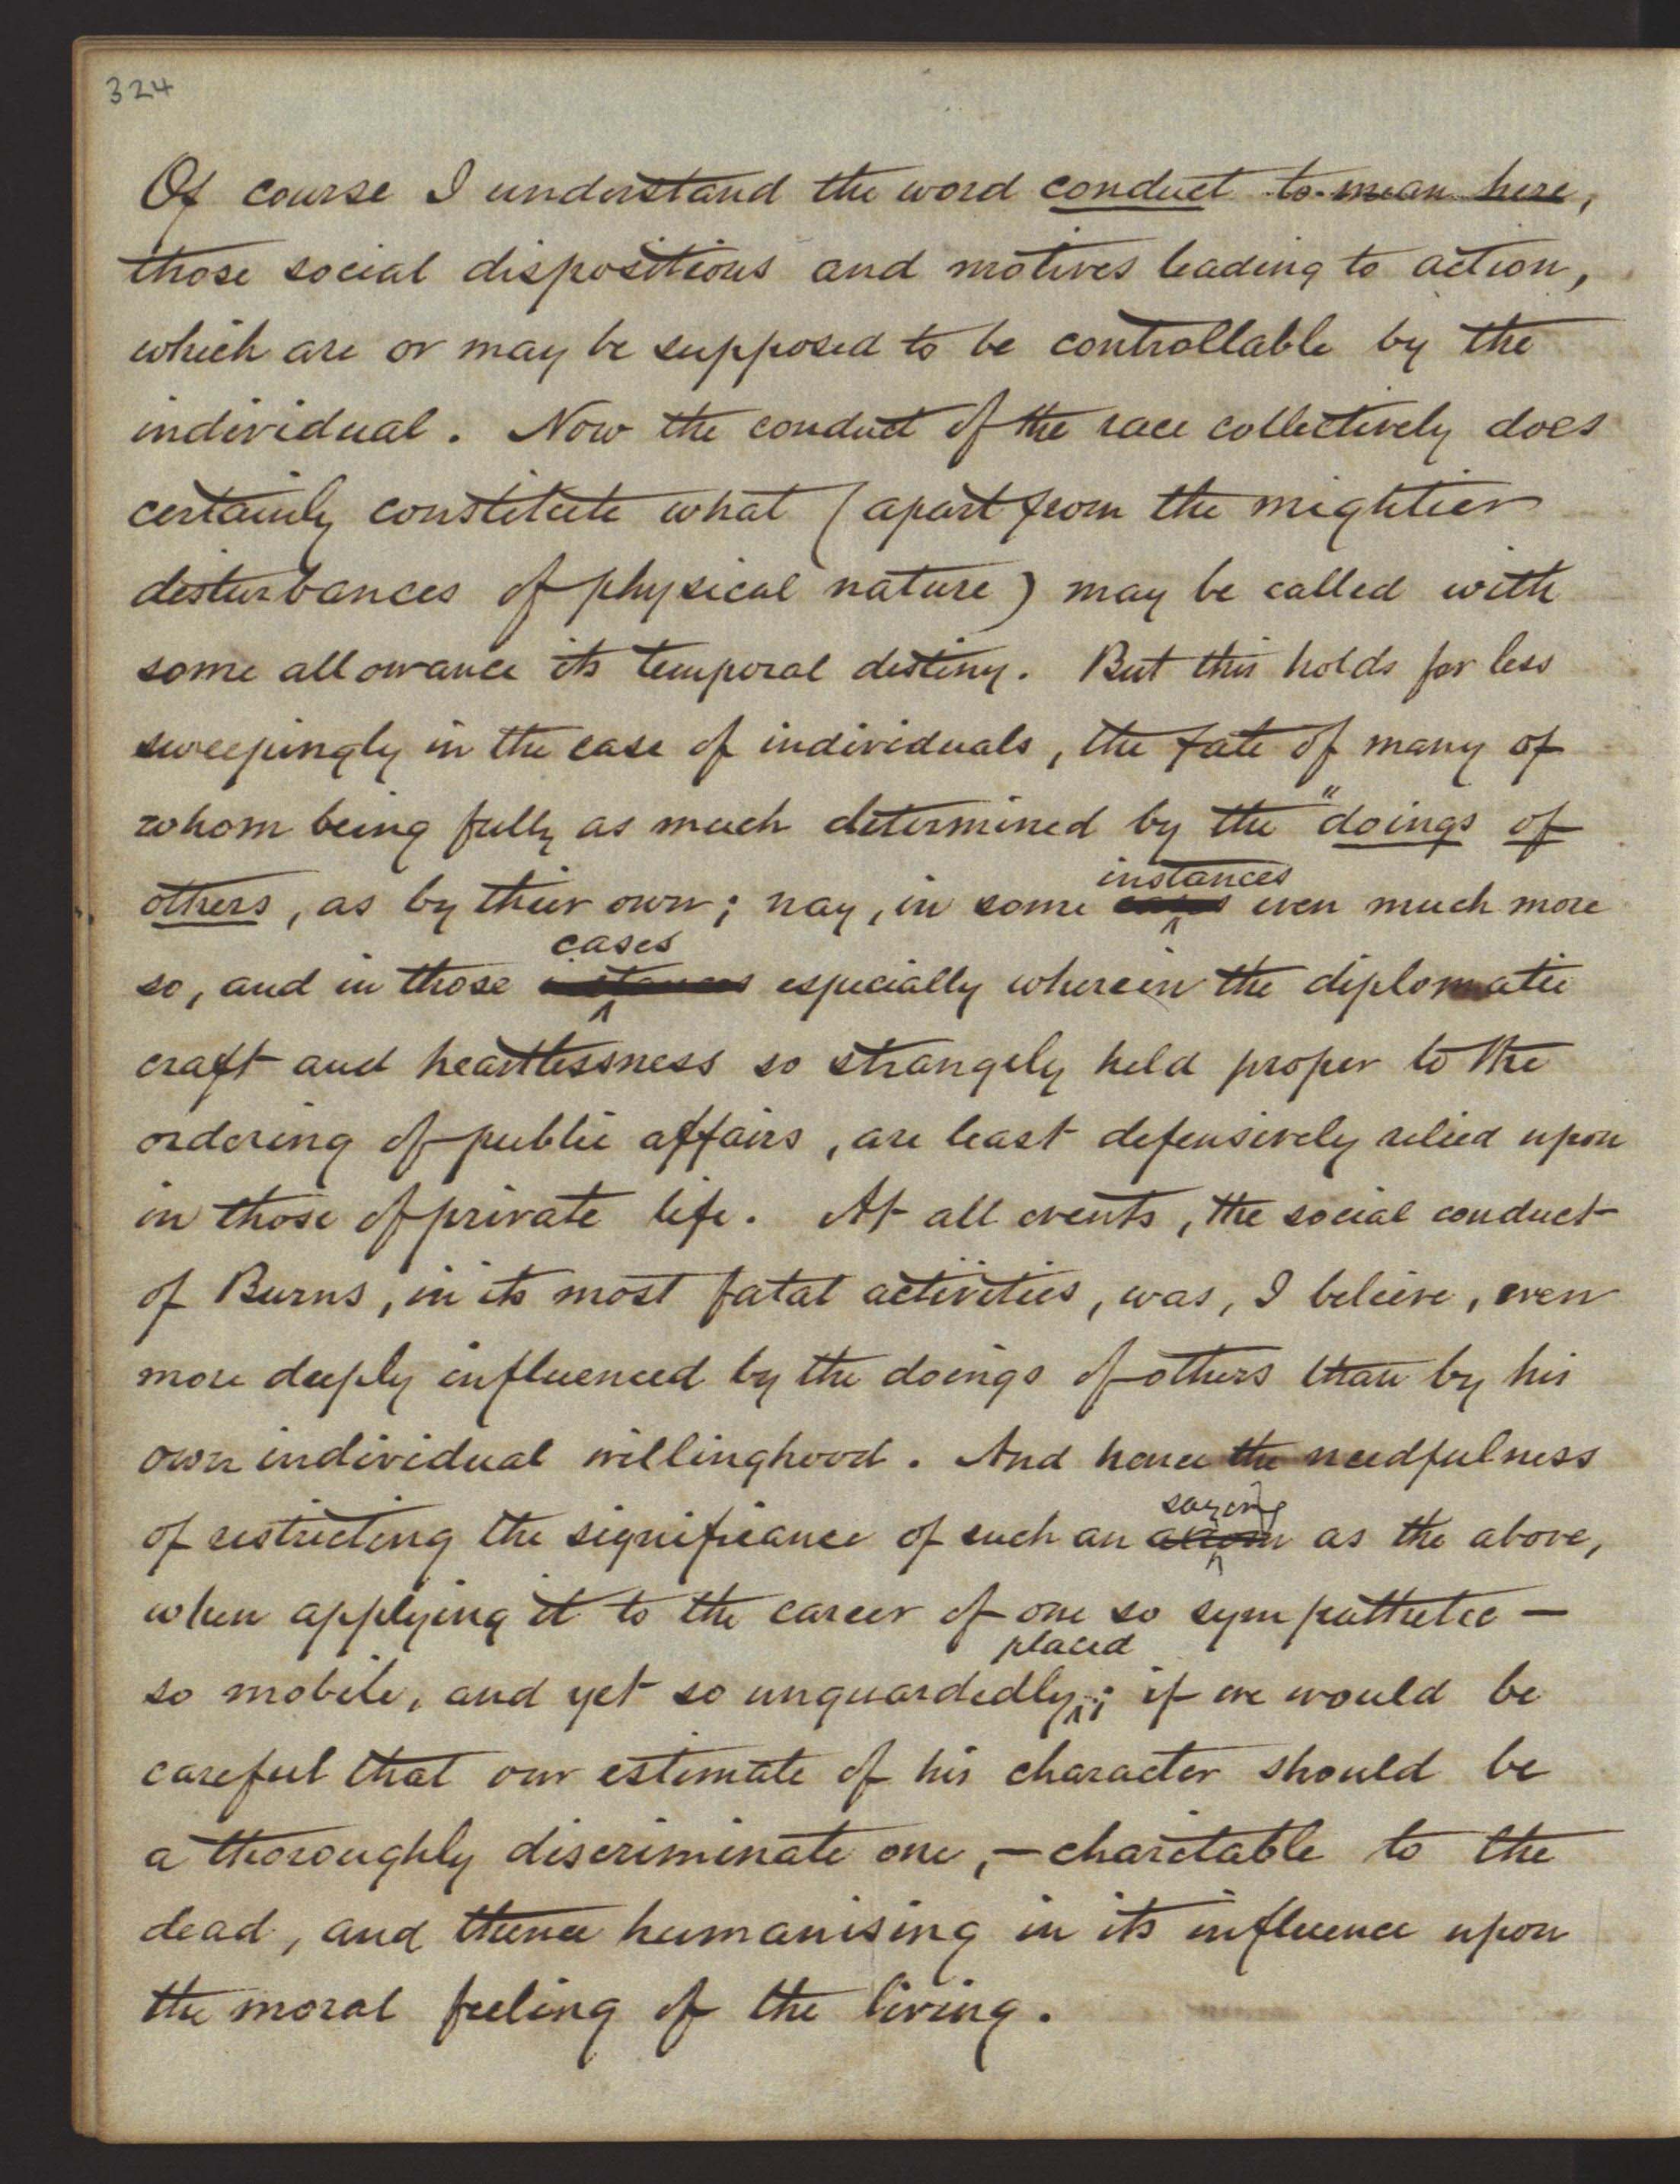 324
Of course I understand the word conduct to mean here,
those social dispositions and motives leading to action,
which are or may be supposed to be controllable by the
individual. Now the conduct of the race collectively does
certainly constitute what (apart from the mightier
disturbances of physical nature) may be called with
some allowance its temporal destiny. But this holds far less
sweepingly in the case of individuals, the fate of many of
whom being fully as much determined by the "doings of
others, as by their own; nay, in some cases instances even much more
so, and in those instances cases especially wherein the diplomatic
craft and heartlessness so strangely held proper to the
ordering of public affairs, are least defensively relied upon
in those of private life. At all events, the social conduct
of Burns, in its most fatal activities, was, I believe, even
more deeply influenced by the doings of others than by his
own individual willinghood. And hence the needfulness
of restricting the significance of such an axiom saying as the above,
when applying it to the career of one so sympathetic —
so mobile, and yet so unguardedly placed; if we would be
careful that our estimate of his character should be
a thoroughly discriminate one, — charitable to the
dead, and thence humanising in its influence upon
the moral feeling of the living.